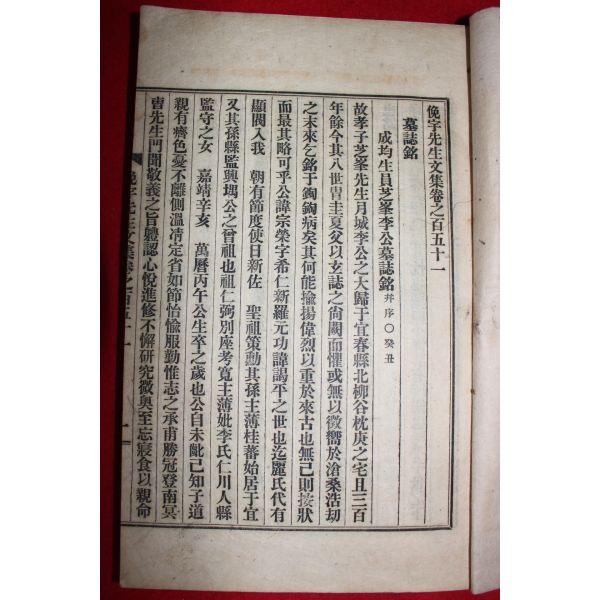 俛宇先生文集卷之百五十一
墓誌銘
成均生員芝峯李公墓誌銘 幷序○癸丑
故孝子芝峯先生月城李公之大歸于宜春縣北柳谷枕庚之宅且三百
年餘今其八世冑圭夏父以玄誌之尙闕而懼或無以徵嚮於滄桑浩劫
之末來乞銘于鋾鋾病矣其何能揄揚偉烈以重於來古也無已則按狀
而最其略可乎公諱宗榮字希仁新羅元功諱謁平之世也迄麗氏代有
顯閥入我 朝有節度使日新佐 聖祖策勳其孫主薄桂蕃始居于宜
又其孫縣監興堣公之曾祖也祖仁弼別座考寬主薄妣李氏仁川人縣
監守之女 嘉靖辛亥 萬曆丙午公生卒之歲也公自未齔已知子道
親有癠色憂不離側溫凊定省如節怡愉服勤惟志之承甫勝冠登南冥
曺先生門聞敬義之旨體認心悅進修不懈硏究微奧至忘寢食以親命
俛宇先生文集卷之百五十一 一